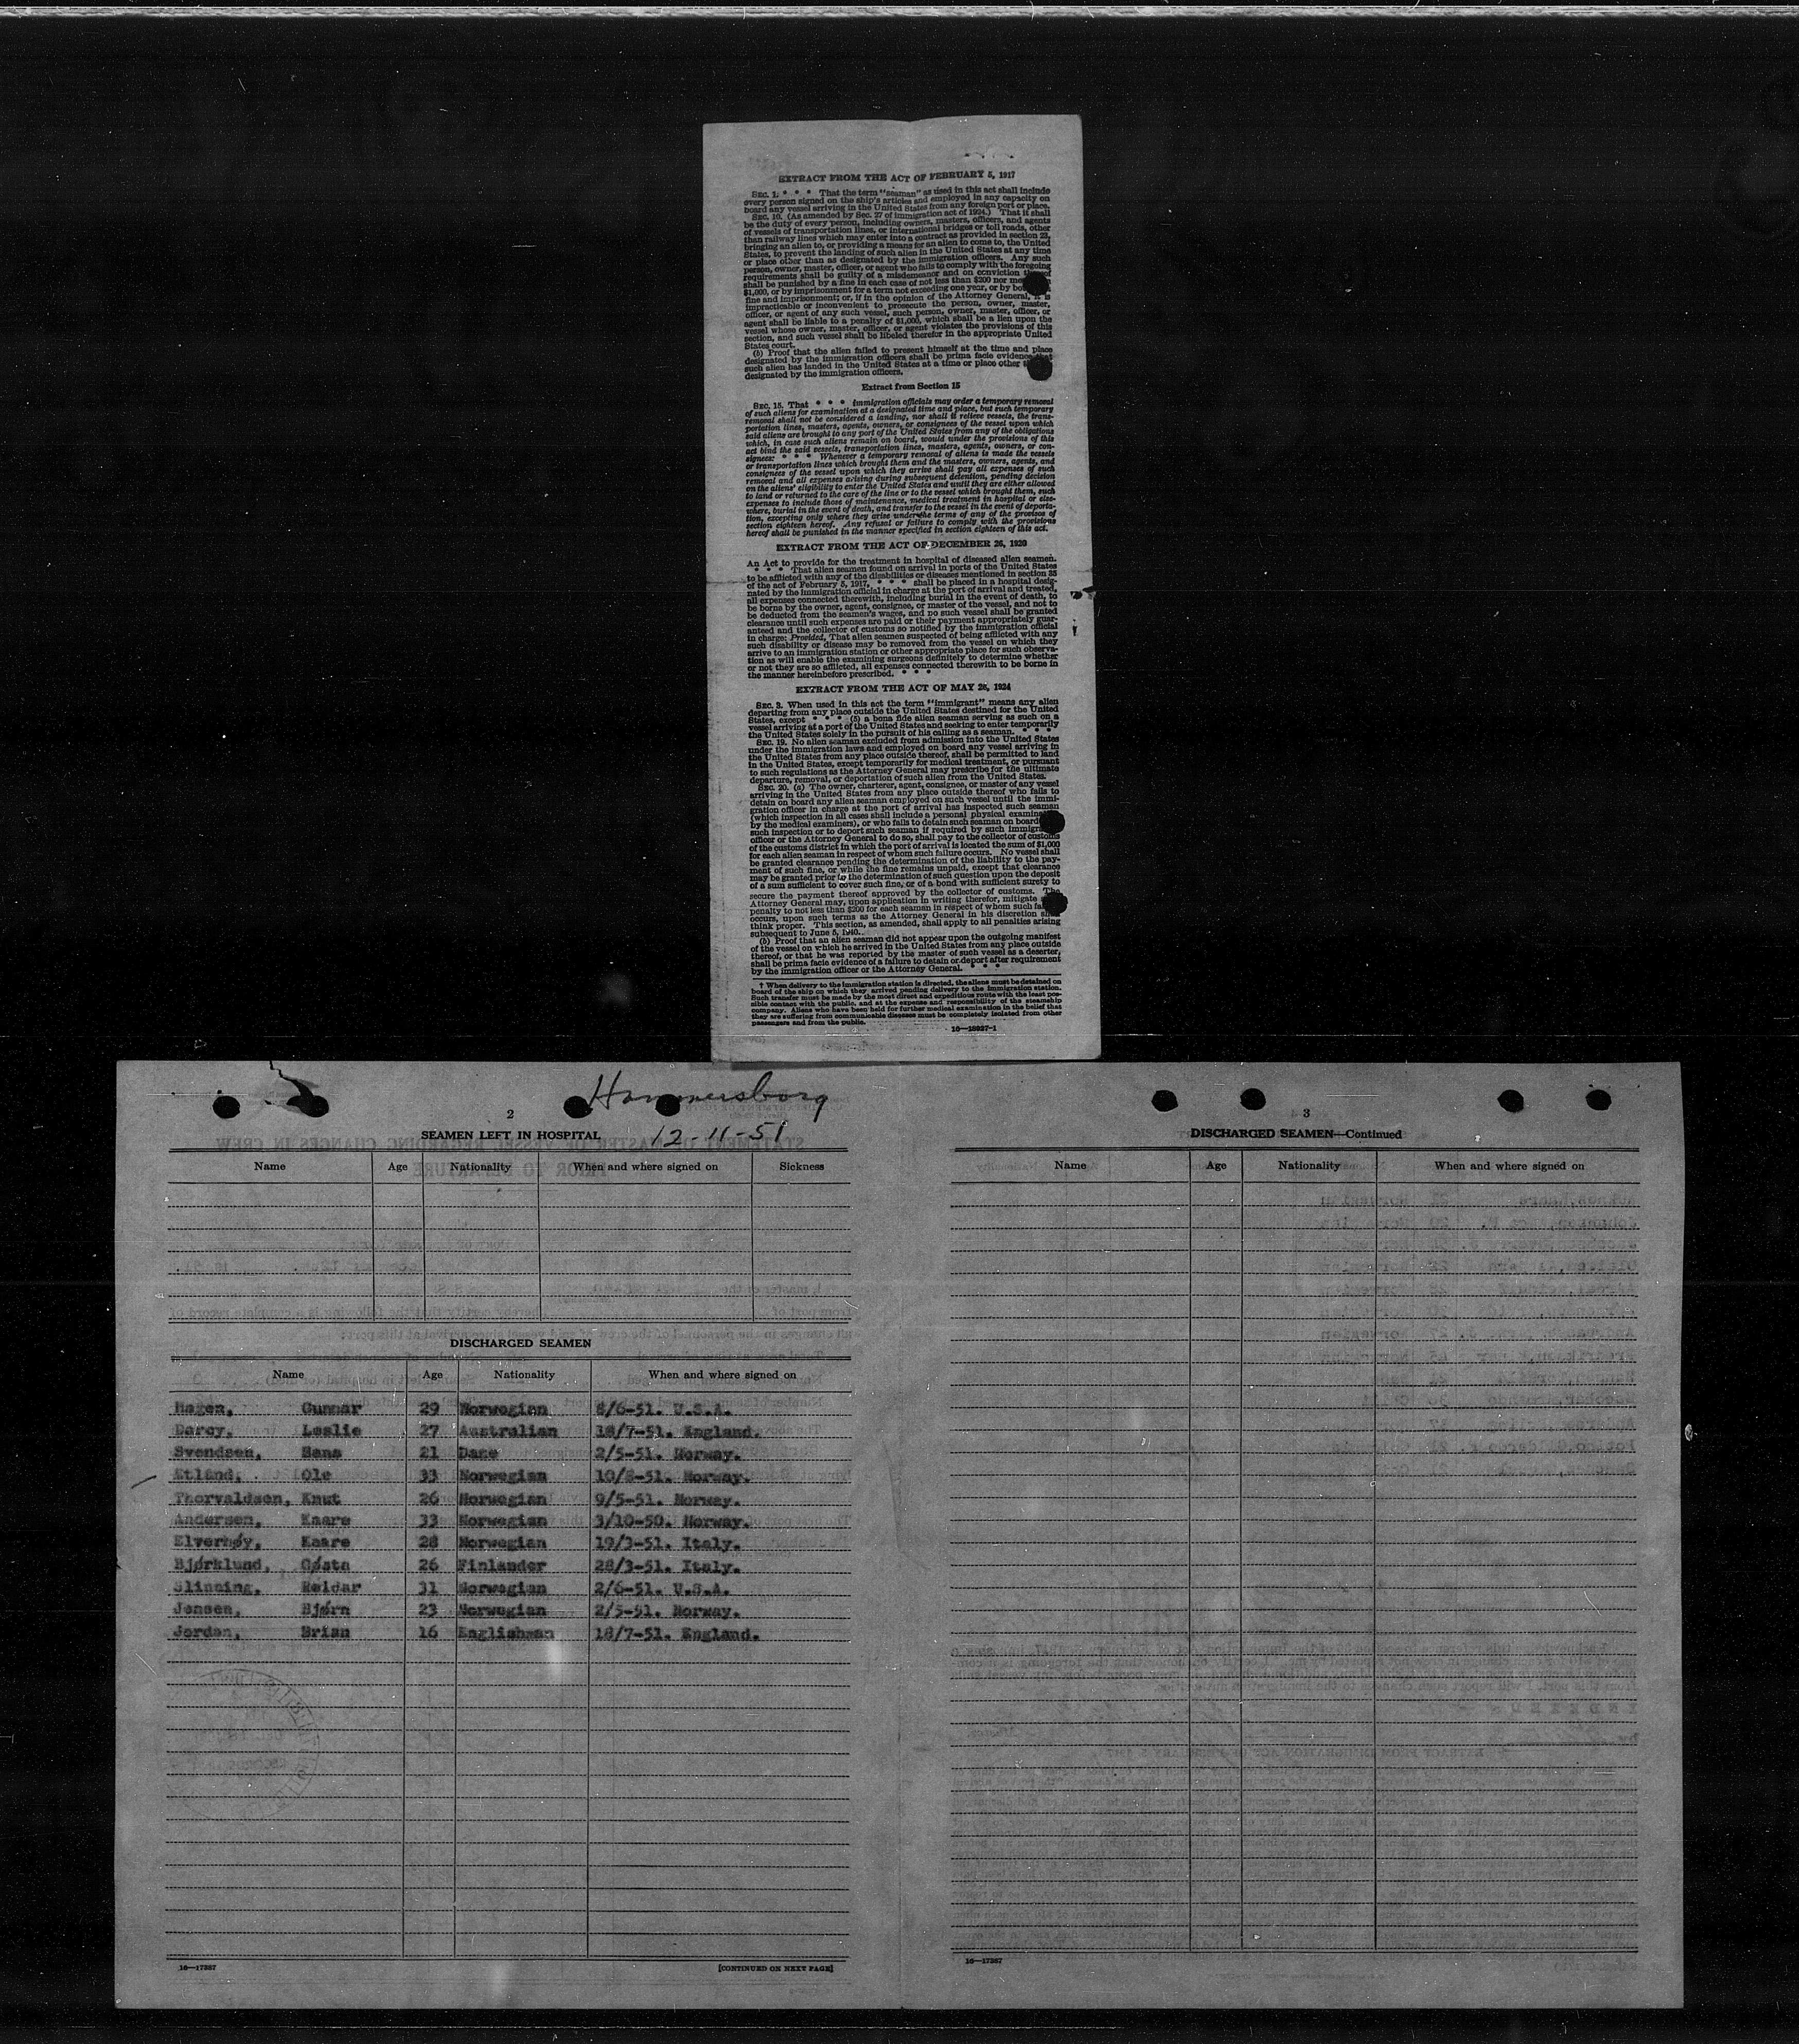 EXTRACT FROM THE ACT OF FEBRUARY 5, 1917
SEC. 1. * * * That the term "seaman" as used in this act shall include
every person signed on the ship's articles and employed in any capacity on
board any vessel arriving in the United States from any foreign port or place.
SEC. 10. (As amended by Sec. 27 of immigration act of 1924.) That it shall
be the duty of every person, including owners, masters, officers, and agents
of vessels of transportation lines, or international bridges or toll roads, other
than railway lines which may enter into a contract as provided in section 23,
bringing an alien to, or providing a means for an alien to come to, the United
States, to prevent the landing of such alien in the United States at any time
or place other than as designated by the immigration officers. Any such
person, owner, master, officer, or agent who fails to comply with the foregoing
requirements shall be guilty of a misdemeanor and on conviction
shall be punished by a fine in each case of not less than $200 nor
$1,000, or by imprisonment for a term not exceeding one year, or by
fine and imprisonment; or, if in the opinion of the Attorney General, it is
impracticable or inconvenient to prosecute the person, owner, master,
officer, or agent of any such vessel, such person, owner, master, officer, or
agent shall be liable to a penalty of $1,000, which shall be a lien upon the
vessel whose owner, master, officer, or agent violates the provisions of this
section, and such vessel shall be libeled therefor in the appropriate United
States court.
(b) Proof that the alien failed to present himself at the time and place
designated by the immigration officers shall be prima facie evidence that
such alien has landed in the United States at a time or place other
designated by the immigration officers.
Extract from Section 15
SEC. 15. That * * * immigration officials may order a temporary removal
of such aliens for examination at a designated time and place, but such temporary
removal shall not be considered a landing, nor shall it relieve vessels, the trans-
portation lines, masters, agents, owners, or consignees of the vessel upon which
said aliens are brought to any port of the United States from any of the obligations
which, in case such aliens remain on board, would under the provisions of this
act bind the said vessels, transportation lines, masters, agents, owners, or con-
signees: * * * Whenever a temporary removal of aliens is made the vessels
or transportation lines which brought them and the masters, owners, agents, and
consignees of the vessel upon which they arrive shall pay all expenses of such
removal and all expenses arising during subsequent detention, pending decision
on the aliens' eligibility to enter the United States and until they are either allowed
to land or returned to the care of the line or to the vessel which brought them, such
expenses to include those of maintenance, medical treatment in hospital or else-
where, burial in the event of death, and transfer to the vessel in the event of deporta-
tion, excepting only where they arise under the terms of any of the provisos of
section eighteen hereof. Any refusal or failure to comply with the provisions
hereof shall be punished in the manner specified in section eighteen of this act.
EXTRACT FROM THE ACT OF DECEMBER 26, 1920
An Act to provide for the treatment in hospital of diseased alien seamen.
* * * That alien seamen found on arrival in ports of the United States
to be afflicted with any of the disabilities or diseases mentioned in section 35
of the act of February 5, 1917, * * * shall be placed in a hospital desig-
nated by the immigration official in charge at the port of arrival and treated,
all expenses connected therewith, including burial in the event of death, to
be borne by the owner, agent, consignee, or master of the vessel, and not to
be deducted from the seamen's wages, and no such vessel shall be granted
clearance until such expenses are paid or their payment appropriately guar-
anteed and the collector of customs so notified by the immigration official
in charge: Provided, That alien seamen suspected of being afflicted with any
such disability or disease may be removed from the vessel on which they
arrive to an immigration station or other appropriate place for such observa-
tion as will enable the examining surgeons definitely to determine whether
or not they are so afflicted, all expenses connected therewith to be borne in
the manner hereinbefore prescribed. * * *
EXTRACT FROM THE ACT OF MAY 26, 1924
SEC. 3. When used in this act the term "immigrant" means any alien
departing from any place outside the United States destined for the United
States, except * * * (5) a bona fide alien seaman serving as such on a
vessel arriving at a port of the United States and seeking to enter temporarily
the United States solely in the pursuit of his calling as a seaman. * * *
SEC. 19. No alien seaman excluded from admission into the United States
under the immigration laws and employed on board any vessel arriving in
the United States from any place outside thereof, shall be permitted to land
in the United States, except temporarily for medical treatment, or pursuant
to such regulations as the Attorney General may prescribe for the ultimate
departure, removal, or deportation of such alien from the United States.
SEC. 20. (a) The owner, charterer, agent, consignee, or master of any vessel
arriving in the United States from any place outside thereof who fails to
detain on board any alien seaman employed on such vessel until the immi-
gration officer in charge at the port of arrival has inspected such seaman
(which inspection in all cases shall include a personal physical
by the medical examiners), or who fails to detain such seaman on board
such inspection or to deport such seaman if required by such
officer or the Attorney General to do so, shall pay to the collector of customs
of the customs district in which the port of arrival is located the sum of $1,000
for each alien seaman in respect of whom such failure occurs. No vessel shall
be granted clearance pending the determination of the liability to the pay-
ment of such fine, or while the fine remains unpaid, except that clearance
may be granted prior to the determination of such question upon the deposit
of a sum sufficient to cover such fine, or of a bond with sufficient surety to
secure the payment thereof approved by the collector of customs. The
Attorney General may, upon application in writing therefor, mitigate
penalty to not less than $200 for each seaman in respect of whom such
occurs, upon such terms as the Attorney General in his discretion
think proper. This section, as amended, shall apply to all penalties arising
subsequent to June 5, 1940.
(b) Proof that an alien seaman did not appear upon the outgoing manifest
of the vessel on which he arrived in the United States from any place outside
thereof, or that he was reported by the master of such vessel as a deserter,
shall be prima facie evidence of a failure to detain or deport after requirement
by the immigration officer or the Attorney General. * * *
† When delivery to the immigration station is directed, the aliens must be detained on
board of the ship on which they arrived pending delivery to the immigration station.
Such transfer must be made by the most direct and expeditious route with the least pos-
sible contact with the public, and at the expense and responsibility of the steamship
company. Aliens who have been held for further medical examination in the belief that
they are suffering from communicable diseases must be completely isolated from other
passengers and from the public.
16—18937-1
Hammersborg
2
SEAMEN LEFT IN HOSPITAL 12-11-51
Name Age Nationality When and where signed on Sickness
DISCHARGED SEAMEN
Name Age Nationality When and where signed on
Hagen, Gunnar 29 Norwegian 8/6-51. U.S.A.
Darcy, Leslie 27 Australian 18/7-51. England.
Svendsen, Hans 21 Dane 2/5-51. Norway.
Etland, Ole 33 Norwegian 10/8-51. Norway.
Thorvaldsen, Knut 26 Norwegian 9/5-51. Norway.
Andersen, Kaare 33 Norwegian 3/10-50. Norway.
Elverhøy, Kaare 28 Norwegian 19/3-51. Italy.
Bjørklund, Gøsta 26 Finlander 28/3-51. Italy.
Slinning, Reidar 31 Norwegian 2/6-51. U.S.A.
Jensen, Bjørn 23 Norwegian 2/5-51. Norway.
Jordan, Brian 16 Englishman 18/7-51. England.
16—17387
[CONTINUED ON NEXT PAGE]
3
DISCHARGED SEAMEN—Continued
Name Age Nationality When and where signed on
16—17387